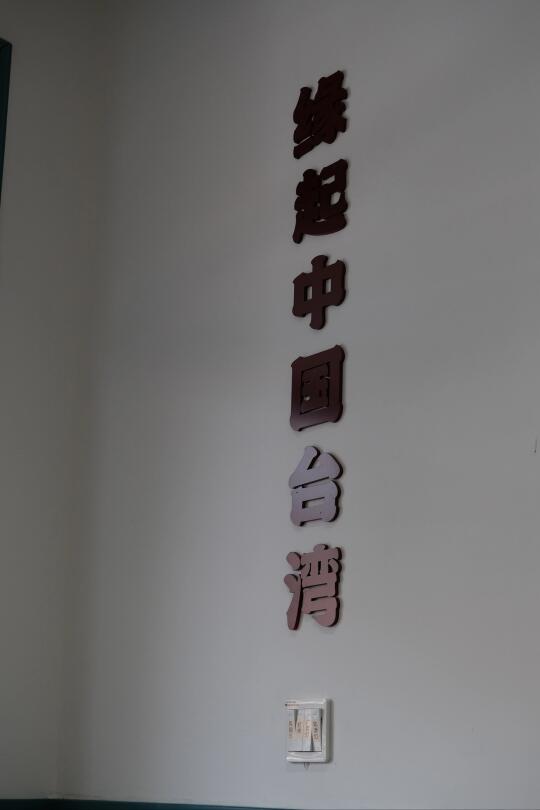 缘起中国台湾